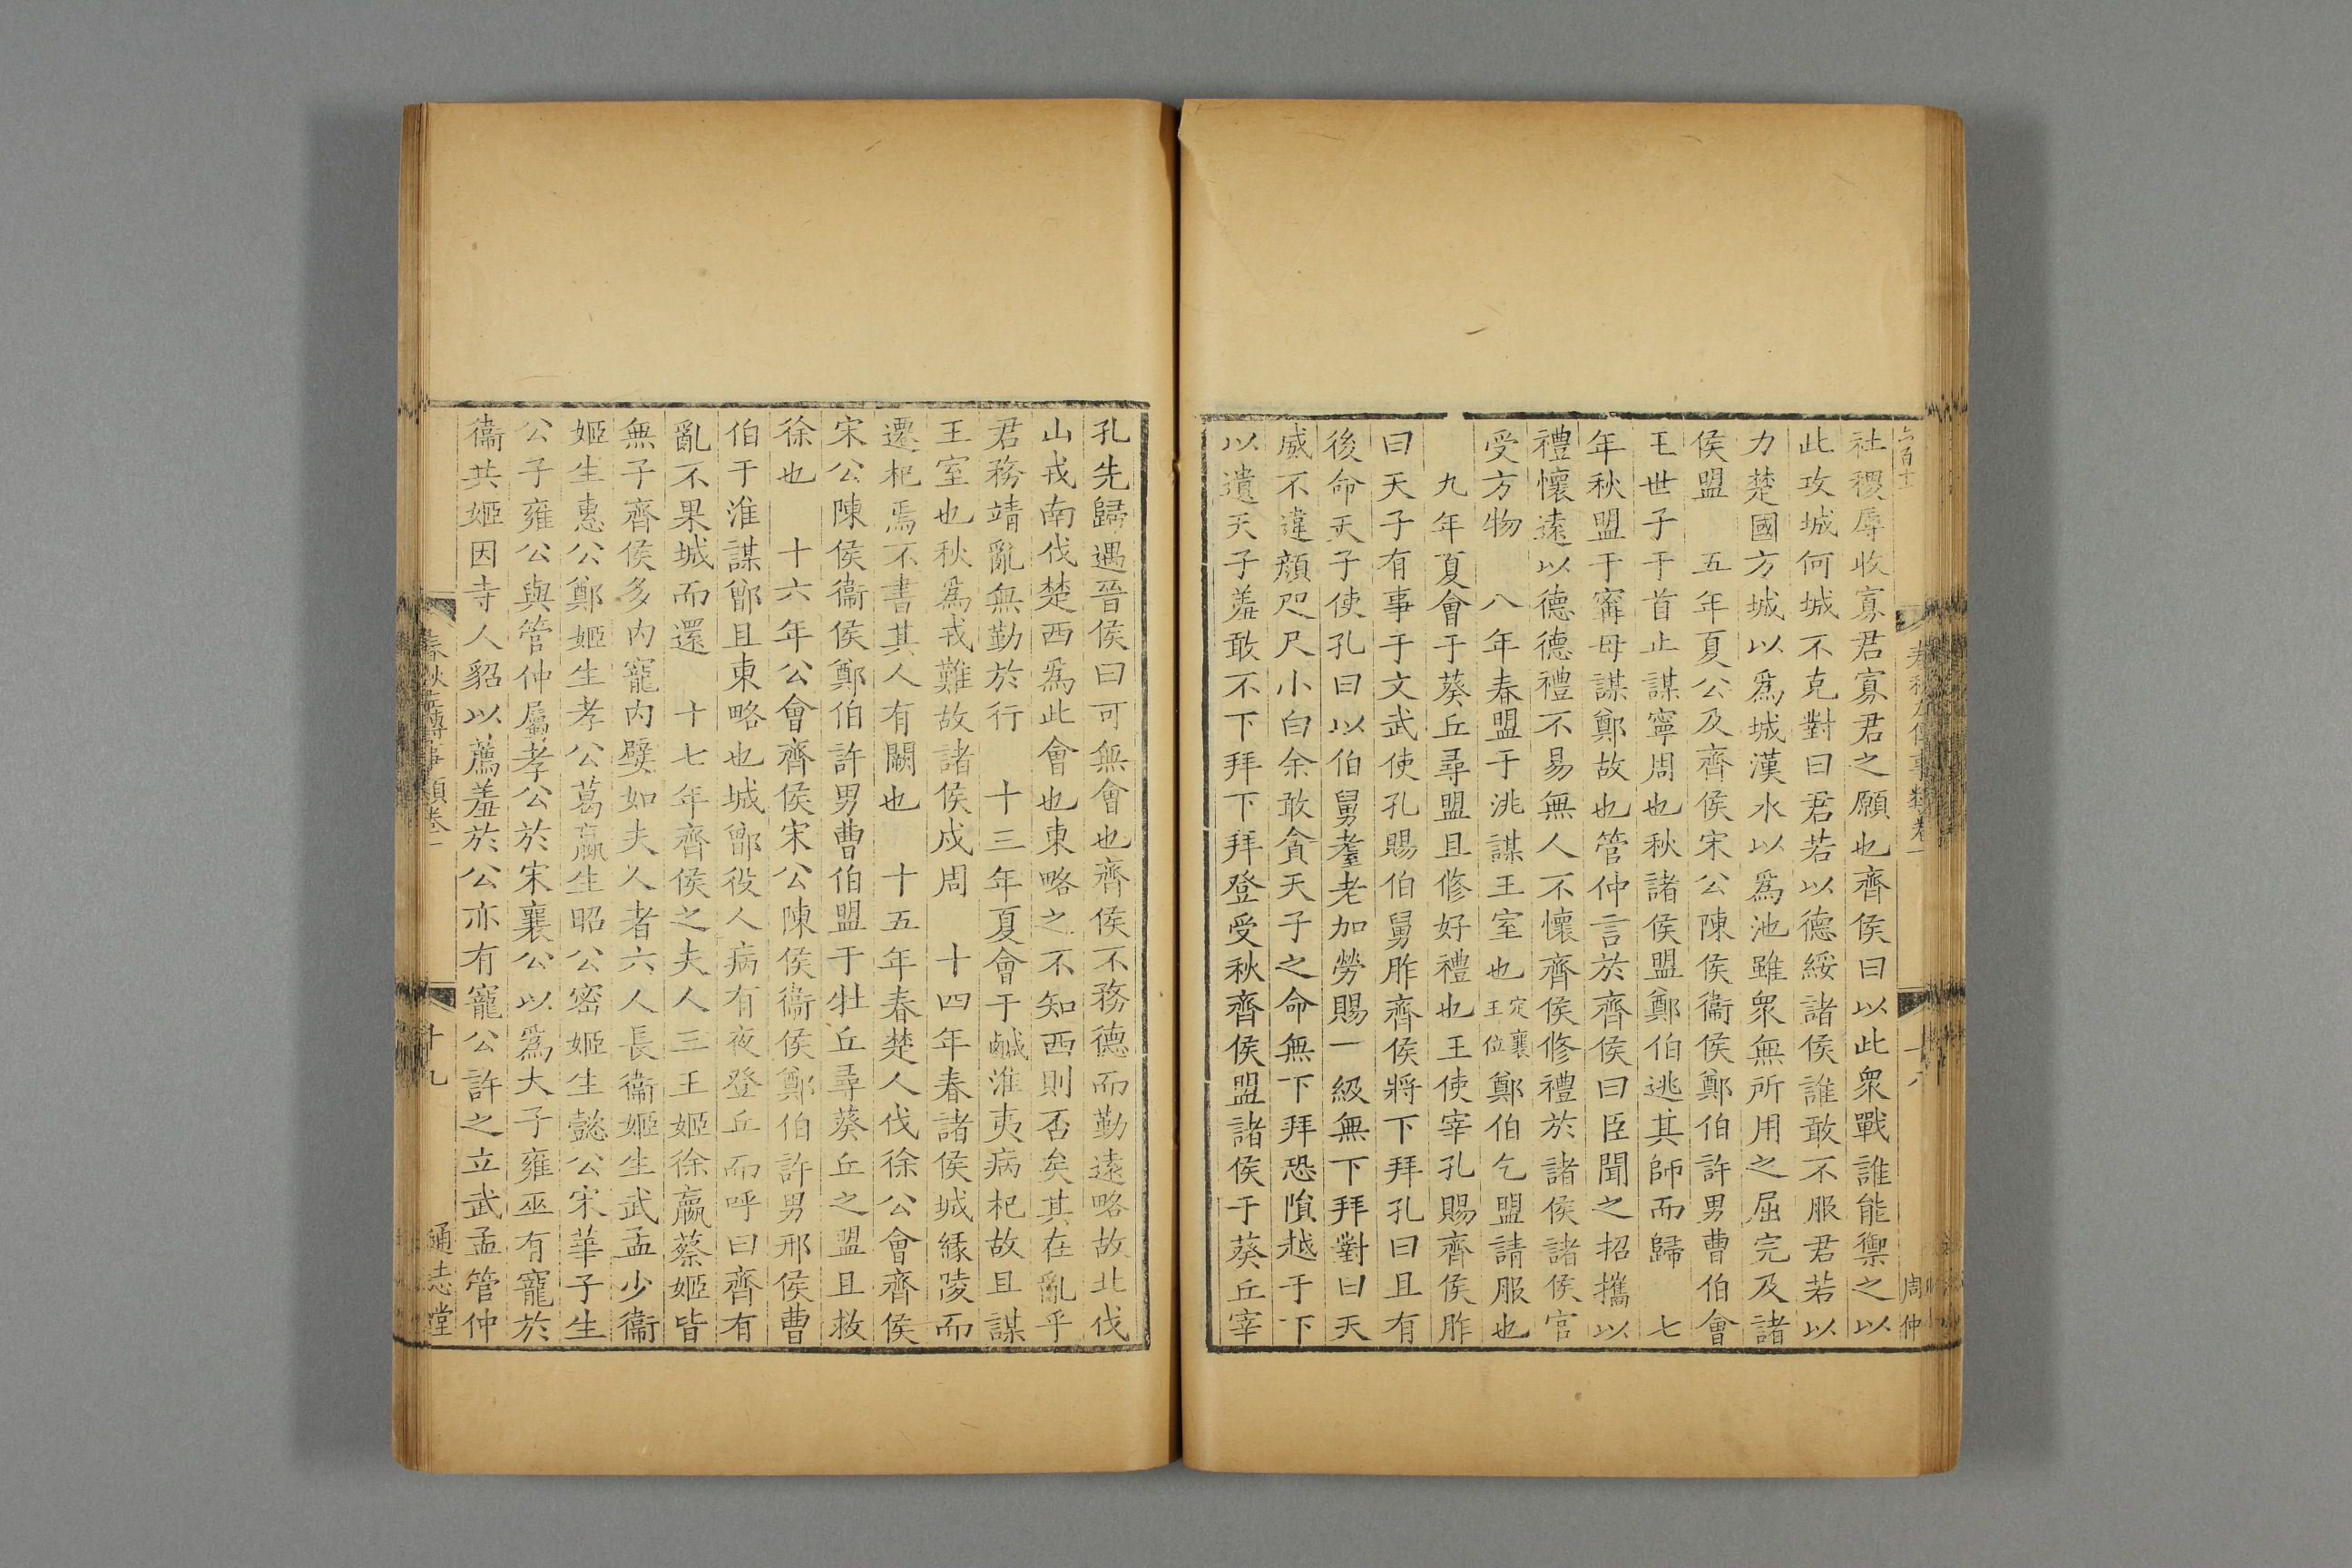 六百十
春秋左傳事類卷一
十八
周仲
社稷辱收寡君寡君之願也齊侯曰以此衆戰誰能禦之以
此攻城何城不克對曰君若以德綏諸侯誰敢不服君若以
力楚國方城以爲城漢水以爲池雖衆無所用之屈完及諸
侯盟　五年夏公及齊侯宋公陳侯衞侯鄭伯許男曹伯會
王世子于首止謀寧周也秋諸侯盟鄭伯逃其師而歸　七
年秋盟于甯母謀鄭故也管仲言於齊侯曰臣聞之招攜以
禮懷遠以德德禮不易無人不懷齊侯修禮於諸侯諸侯官
受方物　八年春盟于洮謀王室也定襄王位鄭伯乞盟請服也
　九年夏會于葵丘尋盟且修好禮也王使宰孔賜齊侯胙
曰天子有事于文武使孔賜伯舅胙齊侯將下拜孔曰且有
後命天子使孔曰以伯舅耋老加勞賜一級無下拜對曰天
威不違顏咫尺小白余敢貪天子之命無下拜恐隕越于下
以遺天子羞敢不下拜下拜登受秋齊侯盟諸侯于葵丘宰
孔先歸遇晉侯曰可無會也齊侯不務德而勤遠略故北伐
山戎南伐楚西爲此會也東略之不知西則否矣其在亂乎
君務靖亂無勤於行　十三年夏會于鹹淮夷病杞故且謀
王室也秋爲戎難故諸侯戍周　十四年春諸侯城緣陵而
遷杞焉不書其人有闕也　十五年春楚人伐徐公會齊侯
宋公陳侯衞侯鄭伯許男曹伯盟于牡丘尋葵丘之盟且救
徐也　十六年公會齊侯宋公陳侯衞侯鄭伯許男邢侯曹
伯于淮謀鄫且東略也城鄫役人病有夜登丘而呼曰齊有
亂不果城而還　十七年齊侯之夫人三王姬徐嬴蔡姬皆
無子齊侯多內寵內嬖如夫人者六人長衞姬生武孟少衞
姬生惠公鄭姬生孝公葛嬴生昭公密姬生懿公宋華子生
公子雍公與管仲屬孝公於宋襄公以爲大子雍巫有寵於
衞共姬因寺人貂以薦羞於公亦有寵公許之立武孟管仲
春秋左傳事類卷一
十九
通志堂